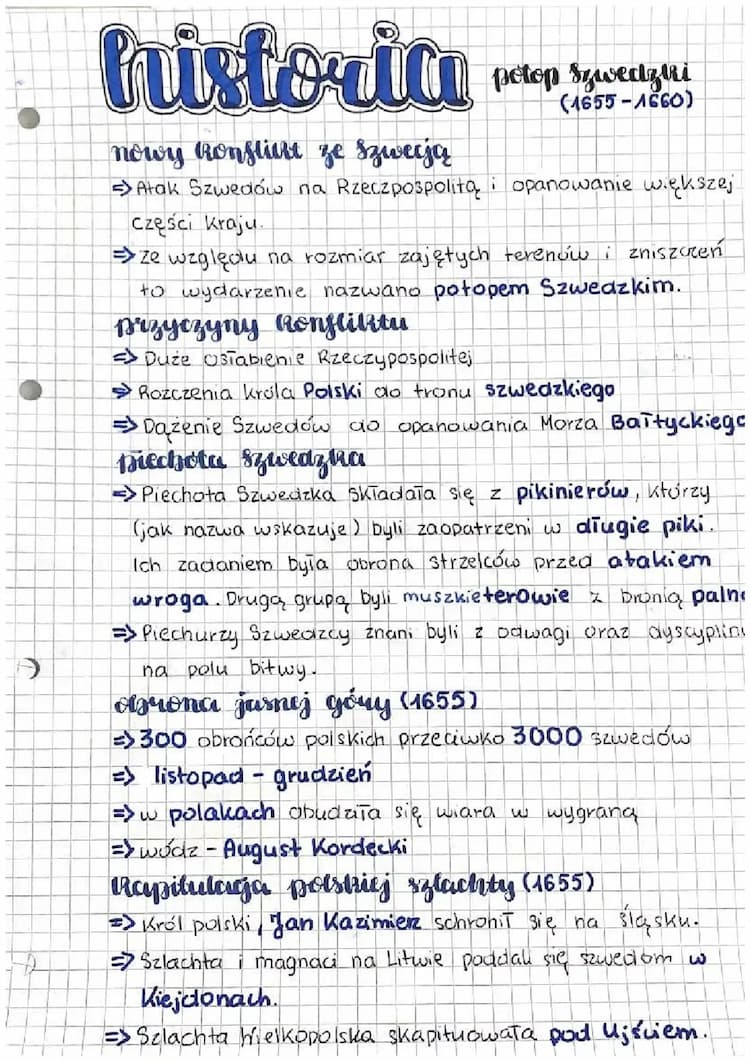 historia
potop Szwedzki
(1655-1660)
nowy konflikt ze Szwecją
=> Atak Szwedów na Rzeczpospolitą i opanowanie większej
części kraju.
=> ze względu na rozmiar zajętych terenów i zniszczeń
to wydarzenie nazwano potopem Szwedzkim.
przyczyny konfliktu
=> Duże osłabienie Rzeczypospolitej
=> Rozczenia króla Polski do tronu szwedzkiego
=> Dążenie Szwedów do opanowania Morza Bałtyckiego
piechota Szwedzka
=> Piechota Szwedzka składała się z pikinierów, którzy
(jak nazwa wskazuje) byli zaopatrzeni w długie piki.
Ich zadaniem była obrona strzelców przed atakiem
wroga. Drugą grupą byli muszkieterowie z bronią palne
=> Piechurzy Szwedzcy znani byli z odwagi oraz dyscyplinu
na polu bitwy.
obrona jasnej góry (1655)
=> 300 obrońców polskich przeciwko 3000 szwedów
=> listopad - grudzień
=> w polakach obudziła się wiara w wygraną
=> wódz - August Kordecki
Kapitulacja polskiej szlachty (1655)
=> Król polski, Jan Kazimierz schronił się na śląsku.
=> Szlachta i magnaci na Litwie poddali się szwedom w
Kiejdonach.
=> Szlachta Wielkopolska skapituowała pod Ujściem.